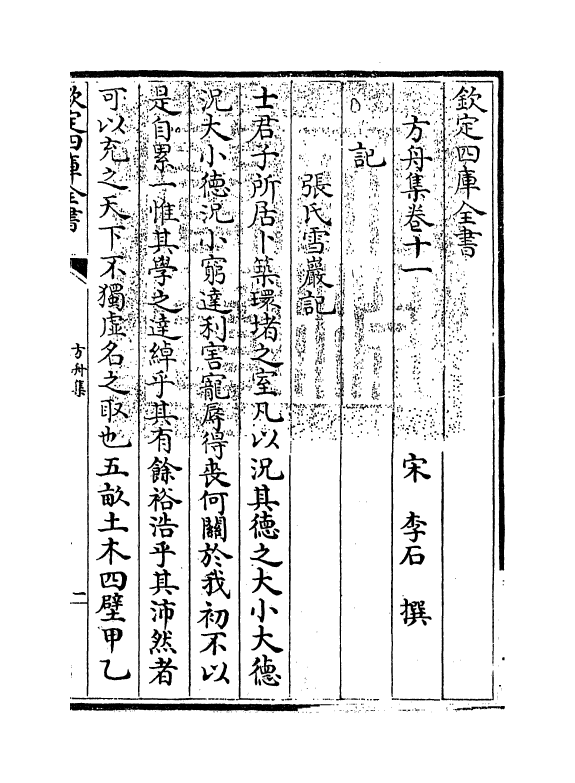 欽定四庫全書
方舟集卷十一
宋 李石 撰
記
張氏雪巖記
士君子所居卜築環堵之室凡以況其德之大小大德
況大小德況小窮達利害寵辱得喪何關於我初不以
是自累一惟其學之達綽乎其有餘裕浩乎其沛然者
可以充之天下不獨虛名之取也五畝土木四壁甲乙
欽定四庫全書
方舟集
二